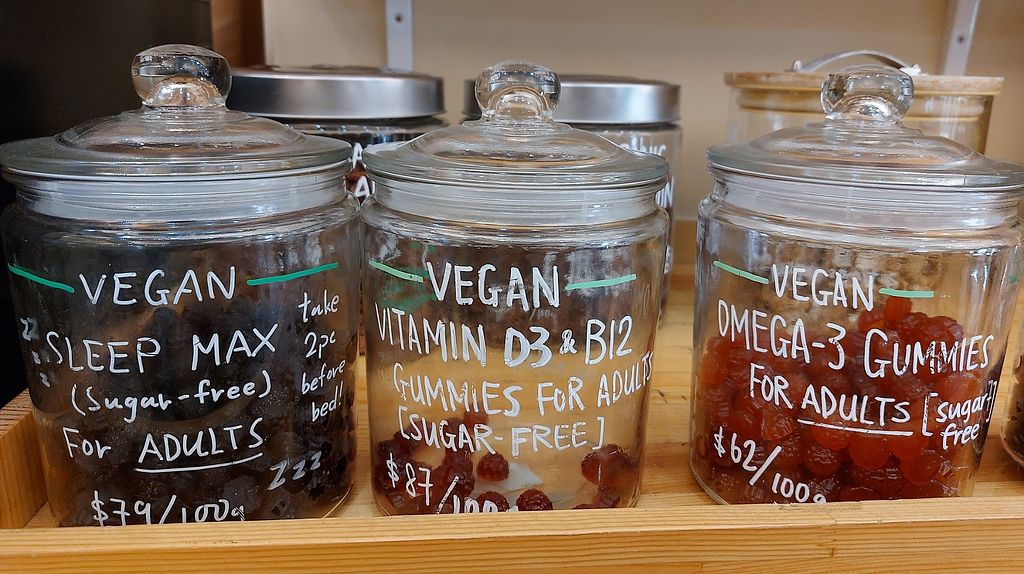 VEGAN
SLEEP MAX
(Sugar-free)
FOR ADULTS
take
2pc
before
bed!
zzz
zzz
$79/100g
VEGAN
VITAMIN D3 & B12
GUMMIES FOR ADULTS
[SUGAR-FREE]
$87/100g
VEGAN
OMEGA-3 GUMMIES
FOR ADULTS [sugar-free]
$62/100g